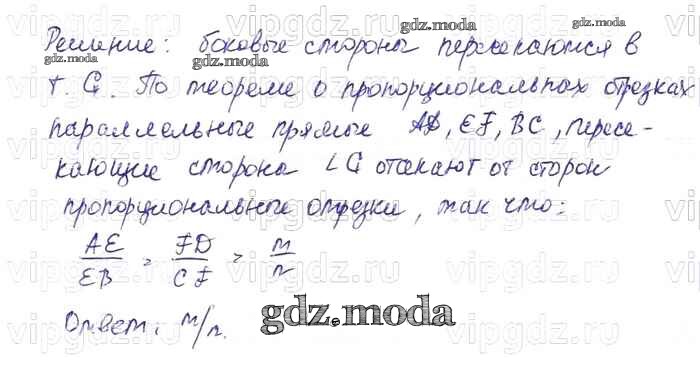 Решение: боковые стороны пересекаются в
т. G. По теореме о пропорциональных отрезках
параллельные прямые AD, EF, BC, пересе-
кающие стороны ∠G отсекают от сторон
пропорциональные отрезки, так что:
AE/EB = FD/CF = m/n
Ответ: m/n.
gdz.moda
gdz.moda
gdz.moda
gdz.moda
vipgdz.ru